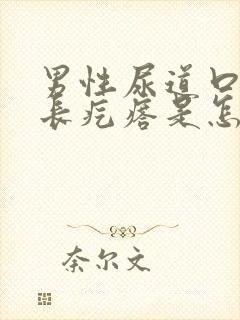 男性尿道口
长疙瘩是怎
奈尔文